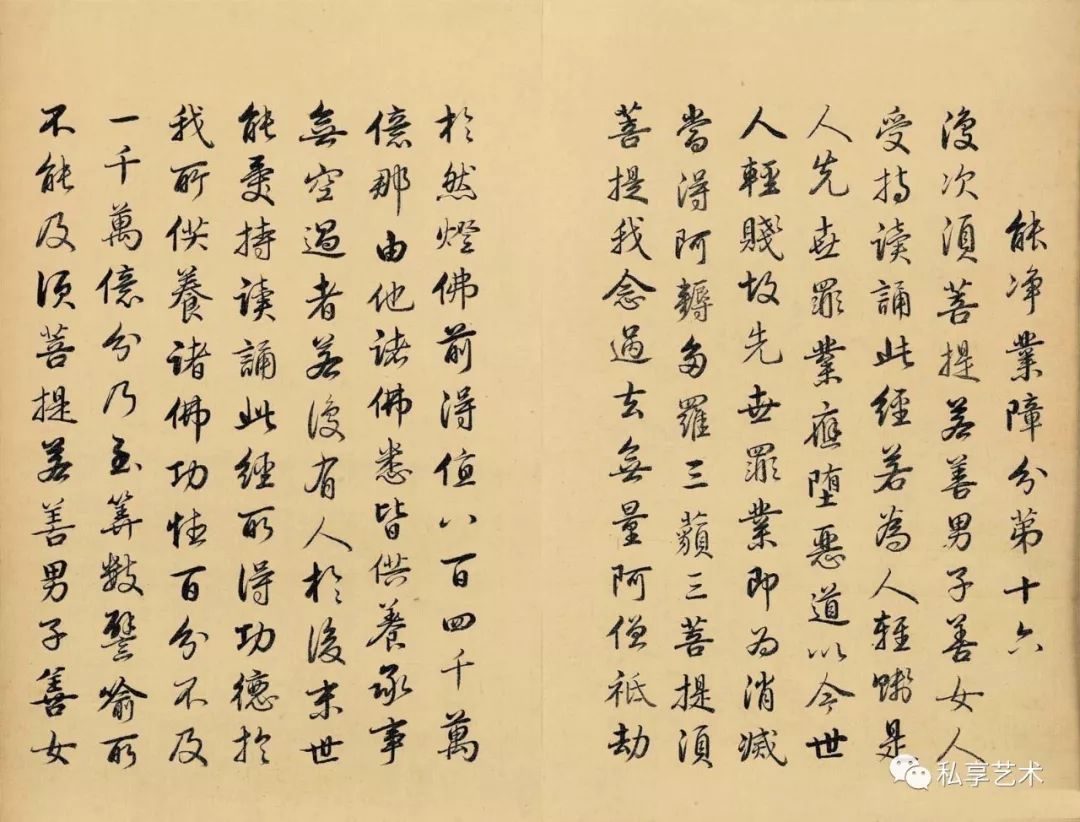 能净業障分第十六
復次須菩提若善男子善女人
受持读誦此經若為人輕賤是
人先世罪業應堕惡道以今世
人輕賤故先世罪業即為消滅
當得阿耨多羅三藐三菩提須
菩提我念過去無量阿僧祇劫
於然燈佛前得值八百四千萬
億那由他諸佛悉皆供養承事
無空過者若復有人於後末世
能受持读誦此經所得功德於
我所供養諸佛功德百分不及
一千萬億分乃至筭數譬喻所
不能及須菩提若善男子善女
私享艺术